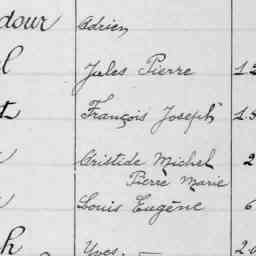 dour Adrien
l Jules Pierre 1
t François Joseph 1
Aristide Michel 2
Pierre Marie
Louis Eugène 6
h Yves 2